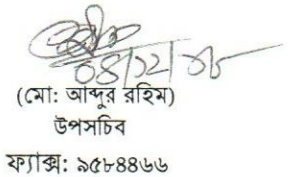 (মো: আব্দুর রহিম)
উপসচিব
ফ্যাক্স: ৯৫৮৪৪৬৬